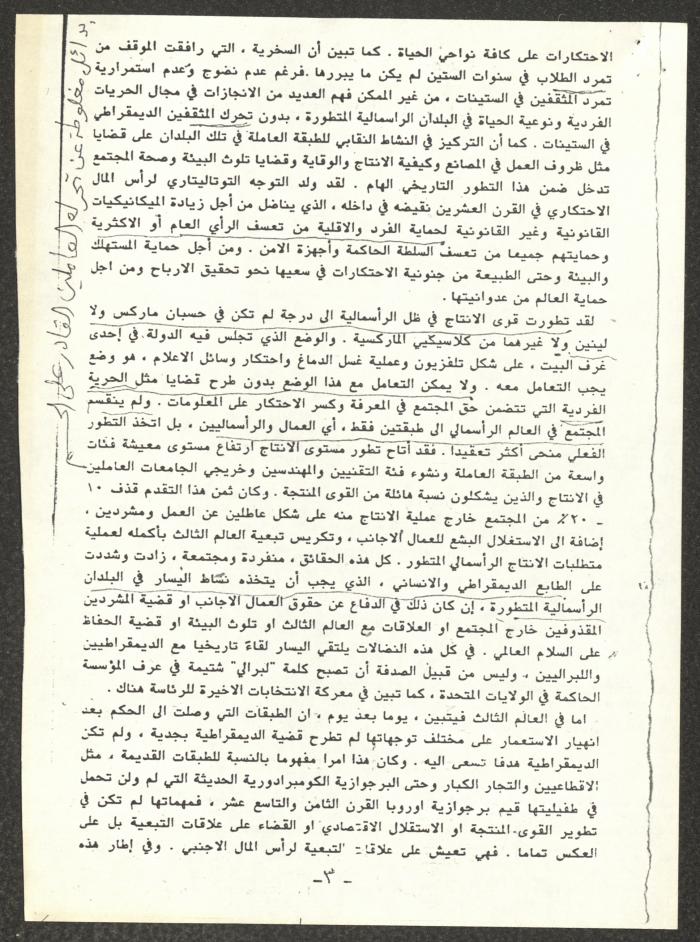 الاحتكارات على كافة نواحي الحياة . كما تبين أن السخرية ، التي رافقت الموقف من
تمرد الطلاب في سنوات الستين لم يكن ما يبررها .فرغم عدم نضوج وعدم استمرارية
تمرد المثقفين في الستينات ، من غير الممكن فهم العديد من الانجازات في مجال الحريات
الفردية ونوعية الحياة في البلدان الراسمالية المتطورة ، بدون تحرك المثقفين الديمقراطي
في الستينات . كما أن التركيز في النشاط النقابي للطبقة العاملة في تلك البلدان على قضايا
مثل ظروف العمل في المصانع وكيفية الانتاج والوقاية وقضايا تلوث البيئة وصحة المجتمع
تدخل ضمن هذا التطور التاريخي الهام . لقد ولد التوجه التوتاليتاري لرأس المال
الاحتكاري في القرن العشرين نقيضه في داخله ، الذي يناضل من أجل زيادة الميكانيكيات
القانونية وغير القانونية لحماية الفرد والاقلية من تعسف الرأي العام أو الاكثرية
وحمايتهم جميعا من تعسف السلطة الحاكمة وأجهزة الامن . ومن أجل حماية المستهلك
والبيئة وحتى الطبيعة من جنونية الاحتكارات في سعيها نحو تحقيق الارباح ومن اجل
حماية العالم من عدوانيتها .
لقد تطورت قوى الانتاج في ظل الرأسمالية الى درجة لم تكن في حسبان ماركس ولا
لينين ولا غيرهما من كلاسيكيي الماركسية . والوضع الذي تجلس فيه الدولة في إحدى
غرف البيت ، على شكل تلفزيون وعملية غسل الدماغ واحتكار وسائل الاعلام ، هو وضع
يجب التعامل معه . ولا يمكن التعامل مع هذا الوضع بدون طرح قضايا مثل الحرية
الفردية التي تتضمن حق المجتمع في المعرفة وكسر الاحتكار على المعلومات . ولم ينقسم
المجتمع في العالم الرأسمالي الى طبقتين فقط ، أي العمال والرأسماليين ، بل اتخذ التطور
الفعلي منحى أكثر تعقيدا . فقد أتاح تطور مستوى الانتاج ارتفاع مستوى معيشة فئات
واسعة من الطبقة العاملة ونشوء فئة التقنيين والمهندسين وخريجي الجامعات العاملين
في الانتاج والذين يشكلون نسبة هائلة من القوى المنتجة . وكان ثمن هذا التقدم قذف ١٠
- ٢٠٪ من المجتمع خارج عملية الانتاج منه على شكل عاطلين عن العمل ومشردين ،
إضافة الى الاستغلال البشع للعمال الاجانب ، وتكريس تبعية العالم الثالث بأكمله لعملية
متطلبات الانتاج الرأسمالي المتطور . كل هذه الحقائق ، منفردة ومجتمعة ، زادت وشددت
على الطابع الديمقراطي والانساني ، الذي يجب أن يتخذه نشاط اليسار في البلدان
الرأسمالية المتطورة ، إن كان ذلك في الدفاع عن حقوق العمال الاجانب او قضية المشردين
المقذوفين خارج المجتمع او العلاقات مع العالم الثالث او تلوث البيئة او قضية الحفاظ
على السلام العالمي . في كل هذه النضالات يلتقي اليسار لقاءً تاريخيا مع الديمقراطيين
واللبراليين ، وليس من قبيل الصدفة أن تصبح كلمة "لبرالي" شتيمة في عرف المؤسسة
الحاكمة في الولايات المتحدة ، كما تبين في معركة الانتخابات الاخيرة للرئاسة هناك .
اما في العالم الثالث فيتبين ، يوما بعد يوم ، ان الطبقات التي وصلت الى الحكم بعد
انهيار الاستعمار على مختلف توجهاتها لم تطرح قضية الديمقراطية بجدية ، ولم تكن
الديمقراطية هدفا تسعى اليه . وكان هذا امرا مفهوما بالنسبة للطبقات القديمة ، مثل
الاقطاعيين والتجار الكبار وحتى البرجوازية الكومبرادورية الحديثة التي لم ولن تحمل
في طفيليتها قيم برجوازية اوروبا القرن الثامن والتاسع عشر ، فمهماتها لم تكن في
تطوير القوى المنتجة او الاستقلال الاقتصادي او القضاء على علاقات التبعية بل على
العكس تماما . فهي تعيش على علاقات التبعية لرأس المال الاجنبي . وفي إطار هذه
- ٣ -